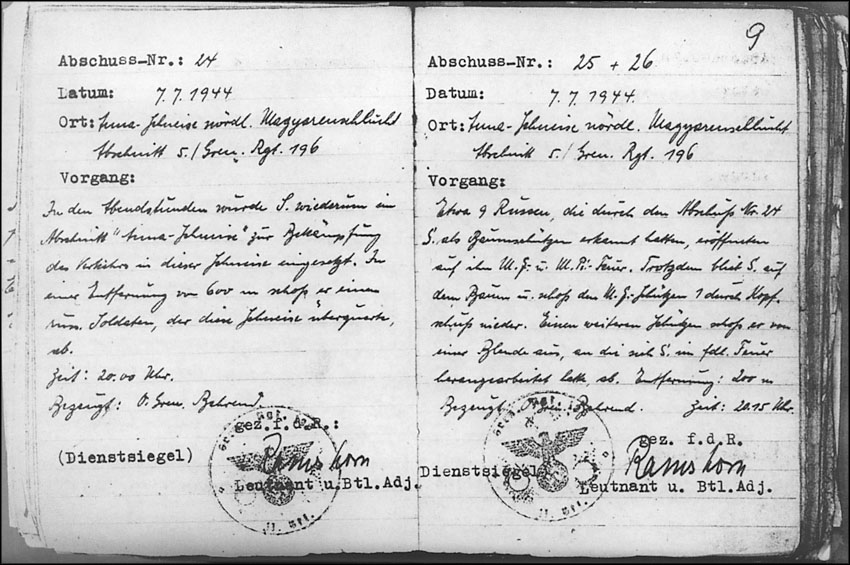 Abschuss-Nr.: 24
Datum: 7.7.1944
Ort: Anna-Schneise nördl. Magyarenschlucht
Abschnitt 5./Gren. Rgt. 196
Vorgang:
In den Abendstunden wurde S. wiederum im
Abschnitt "Anna-Schneise" zur Bekämpfung
des Verkehrs in dieser Schneise eingesetzt. In
einer Entfernung von 600 m schoß er einen
russ. Soldaten, der diese Schneise überquerte,
ab.
Zeit: 20.00 Uhr.
Bezeugt: O. Gren. Behrend
gez.f.d.R.:
(Dienstsiegel)
Ramshorn
Leutnant u.Btl.Adj.
9
Abschuss-Nr.: 25 + 26
Datum: 7.7.1944.
Ort: Anna-Schneise nördl. Magyarenschlucht
Abschnitt 5./Gren. Rgt. 196
Vorgang:
Etwa 9 Russen, die durch den Abschuß Nr. 24
S. als Baumschützen erkannt hatten, eröffneten
auf ihn M.G.- u. M.Pi.-Feuer. Trotzdem blieb S. auf
dem Baum u. schoß den M.G.-Schützen 1 durch Kopf-
schuß nieder. Einen weiteren Schützen schoß er von
einer Blende aus, an die sich S. im fdl. Feuer
herangearbeitet hatte, ab. Entfernung: 200 m
Bezeugt: O. Gren. Behrend. Zeit: 20.15 Uhr.
gez. f.d.R.
Dienstsiegel)
Ramshorn
Leutnant u. Btl.Adj.